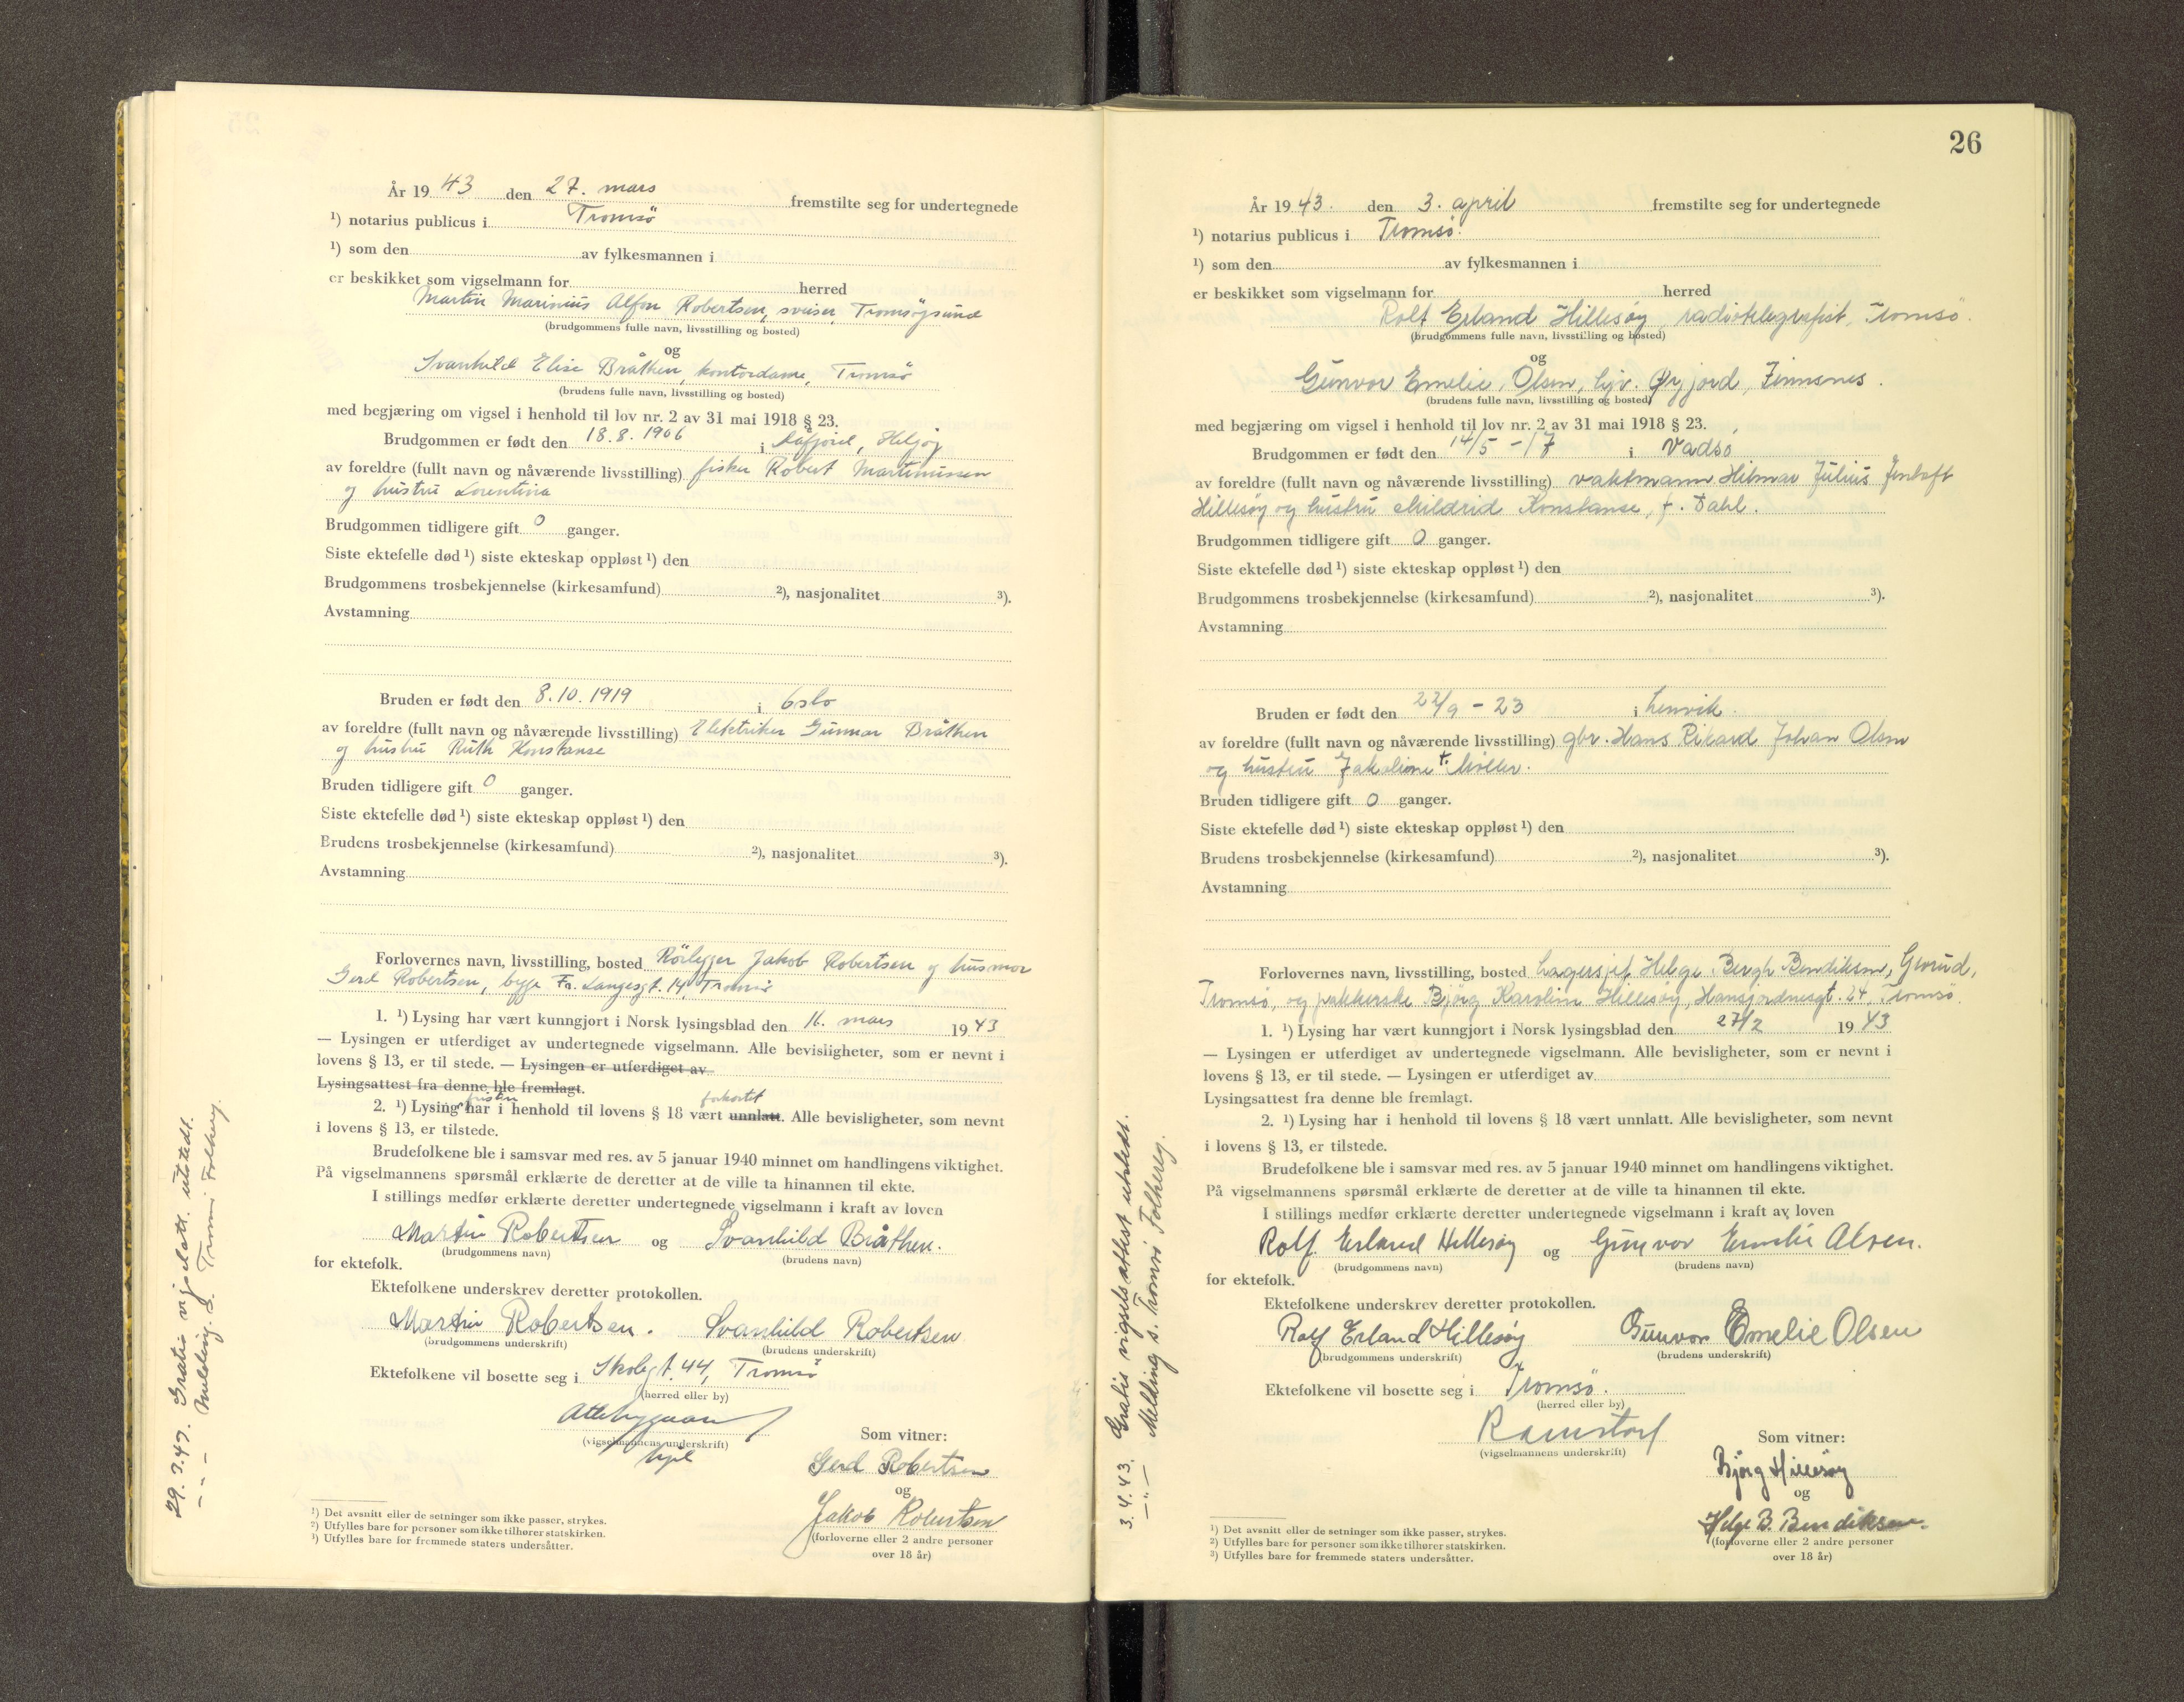 År 1943 den 27. mars fremstilte seg for undertegnede
¹) notarius publicus i Tromsö
¹) som den av fylkesmannen i
er beskikket som vigselmann for herred
Martin Marinius Alfon Robertsen, sveiser, Tromsøysund
(brudgommens fulle navn, livsstilling og bosted)
og
Svanhild Elise Bråthen, kontordame, Tromsö
(brudens fulle navn, livsstilling og bosted)
med begjæring om vigsel i henhold til lov nr. 2 av 31 mai 1918 § 23.
Brudgommen er født den 18.8.1906 i Helgøy
av foreldre (fullt navn og nåværende livsstilling) fisker Robert Martinussen
og hustru Lorentina
Brudgommen tidligere gift 0 ganger.
Siste ektefelle død ¹) siste ekteskap oppløst ¹) den
Brudgommens trosbekjennelse (kirkesamfund) ²), nasjonalitet ³).
Avstamning
Bruden er født den 8.10.1919 i Oslo
av foreldre (fullt navn og nåværende livsstilling) Elektriker Gunnar Bråthen
og hustru Ruth Konstanse
Bruden tidligere gift 0 ganger.
Siste ektefelle død ¹) siste ekteskap oppløst ¹) den
Brudens trosbekjennelse (kirkesamfund) ²), nasjonalitet ³).
Avstamning
Forlovernes navn, livsstilling, bosted Rörlegger Jakob Robertsen og husmor
Gerd Robertsen, begge Fr. Langesgt. 14, Tromsö
1. ¹) Lysing har vært kunngjort i Norsk lysingsblad den 16. mars 1943
— Lysingen er utferdiget av undertegnede vigselmann. Alle bevisligheter, som er nevnt i
lovens § 13, er til stede. — Lysingen er utferdiget av
Lysingsattest fra denne ble fremlagt.
fristen forkortet
2. ¹) Lysing har i henhold til lovens § 18 vært unnlatt. Alle bevisligheter, som nevnt
i lovens § 13, er tilstede.
Brudefolkene ble i samsvar med res. av 5 januar 1940 minnet om handlingens viktighet.
På vigselmannens spørsmål erklærte de deretter at de ville ta hinannen til ekte.
I stillings medfør erklærte deretter undertegnede vigselmann i kraft av loven
Martin Robertsen og Svanhild Bråthen.
(brudgommens navn) (brudens navn)
for ektefolk.
Ektefolkene underskrev deretter protokollen.
Martin Robertsen. Svanhild Robertsen
(brudgommens underskrift) (brudens underskrift)
Ektefolkene vil bosette seg i Skolegt. 44, Tromsö
(herred eller by)
(vigselmannens underskrift)
Som vitner:
Gerd Robertsen
og
Jakob Robertsen
(forloverne eller 2 andre personer
over 18 år)
¹) Det avsnitt eller de setninger som ikke passer, strykes.
²) Utfylles bare for personer som ikke tilhører statskirken.
³) Utfylles bare for fremmede staters undersåtter.
29.3.43. Gratis vigselatt. utstedt.
— " — Melding s. Tromsö Folkereg.
26
År 1943. den 3. april fremstilte seg for undertegnede
¹) notarius publicus i Tromsö.
¹) som den av fylkesmannen i
er beskikket som vigselmann for herred
Rolf Erland Hillesøy, radiotelegrafist, Tromsö.
(brudgommens fulle navn, livsstilling og bosted)
og
Gunvor Emelie Olsen, hjv. Øyjord, Finnsnes.
(brudens fulle navn, livsstilling og bosted)
med begjæring om vigsel i henhold til lov nr. 2 av 31 mai 1918 § 23.
Brudgommen er født den 14/5 - 17 i Vadsö
av foreldre (fullt navn og nåværende livsstilling) vaktmann Hilmar Julius Jenhoft
Hillesøy og hustru Konstanse, f. Dahl.
Brudgommen tidligere gift 0 ganger.
Siste ektefelle død ¹) siste ekteskap oppløst ¹) den
Brudgommens trosbekjennelse (kirkesamfund) ²), nasjonalitet ³).
Avstamning
Bruden er født den 22/9 - 23 i Lenvik.
av foreldre (fullt navn og nåværende livsstilling) gbr. Hans Rikard Johan Olsen
og hustru Jakoline f. Möller.
Bruden tidligere gift 0 ganger.
Siste ektefelle død ¹) siste ekteskap oppløst ¹) den
Brudens trosbekjennelse (kirkesamfund) ²), nasjonalitet ³).
Avstamning
Forlovernes navn, livsstilling, bosted Lagersjef Helge Bergh Bendiksen, Grorud,
Tromsö, og pakkerske Bjørg Karoline Hillesøy, Hansjordnesgt. 24, Tromsö.
1. ¹) Lysing har vært kunngjort i Norsk lysingsblad den 27/2 1943
— Lysingen er utferdiget av undertegnede vigselmann. Alle bevisligheter, som er nevnt i
lovens § 13, er til stede. — Lysingen er utferdiget av
Lysingsattest fra denne ble fremlagt.
2. ¹) Lysing har i henhold til lovens § 18 vært unnlatt. Alle bevisligheter, som nevnt
i lovens § 13, er tilstede.
Brudefolkene ble i samsvar med res. av 5 januar 1940 minnet om handlingens viktighet.
På vigselmannens spørsmål erklærte de deretter at de ville ta hinannen til ekte.
I stillings medfør erklærte deretter undertegnede vigselmann i kraft av loven
Rolf Erland Hillesøy og Gunvor Emelie Olsen.
(brudgommens navn) (brudens navn)
for ektefolk.
Ektefolkene underskrev deretter protokollen.
Rolf Erland Hillesøy Gunvor Emelie Olsen
(brudgommens underskrift) (brudens underskrift)
Ektefolkene vil bosette seg i Tromsö.
(herred eller by)
(vigselmannens underskrift)
Som vitner:
Bjørg Hillesøy
og
Helge B. Bendiksen.
(forloverne eller 2 andre personer
over 18 år)
¹) Det avsnitt eller de setninger som ikke passer, strykes.
²) Utfylles bare for personer som ikke tilhører statskirken.
³) Utfylles bare for fremmede staters undersåtter.
3.4.43. Gratis vigselsattest utstedt.
— " — Melding s. Tromsö Folkereg.